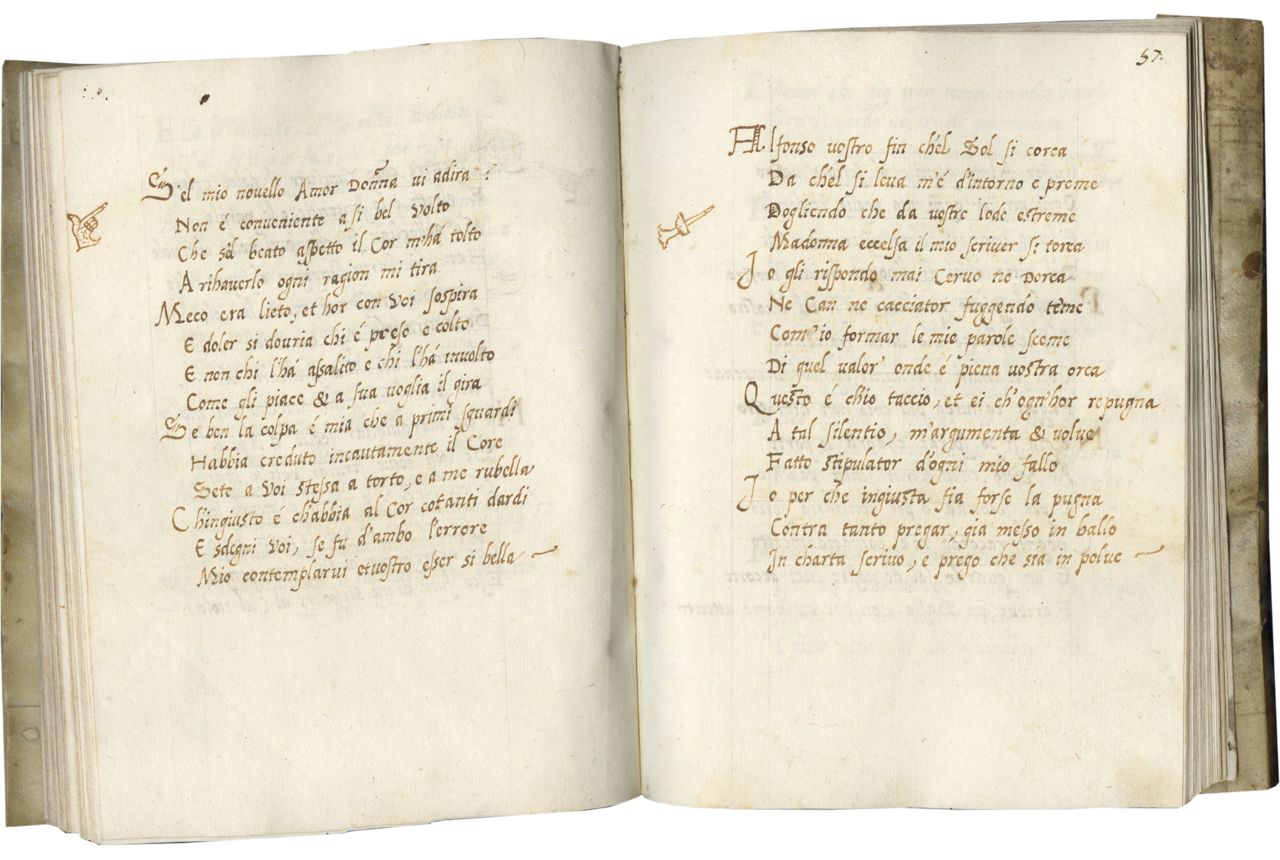 S'el mio novello Amor Donna vi adira ?
Non é conveniente a si bel Volto
Che s'el beato aspetto il Cor m'há tolto
A rihaverlo ogni ragion mi tira
Meco era lieto, et hor con Voi sospira
E doler si douria chi é preso e colto
E non chi l'há assalito e chi l'há involto
Come gli piace & a sua voglia il gira
Se ben la colpa é mia che a primi sguardi
Habbia creduto incautamente il Core
Sete a Voi stessa a torto, e a me rubella
Ch'ingiusto é c'habbia al Cor cotanti dardi
E sdegni Voi, se fú d'ambo l'errore
Mio contemplarvi et vostro esser si bella
57.
Alfonso vostro fin ch'el Sol si corca
Da ch'el si leva m'é d'intorno e preme
Dogliendo che da vostre lode estreme
Madonna eccelsa il mio scriver si torca
Io gli rispondo mai Cervo ne Dorca
Ne Can ne cacciator fuggendo teme
Com'io formar le mie parole sceme
Di quel valor onde é piena vostra orca
Questo é ch'io taccio, et ei ch'ogn'hor repugna
A tal silentio, m'argumenta & volve
Fatto stipulator d'ogni mio fallo
Io per che ingiusta fia forse la pugna
Contra tanto pregar, gia messo in ballo
In charta scrivo, e prego che sia in polve